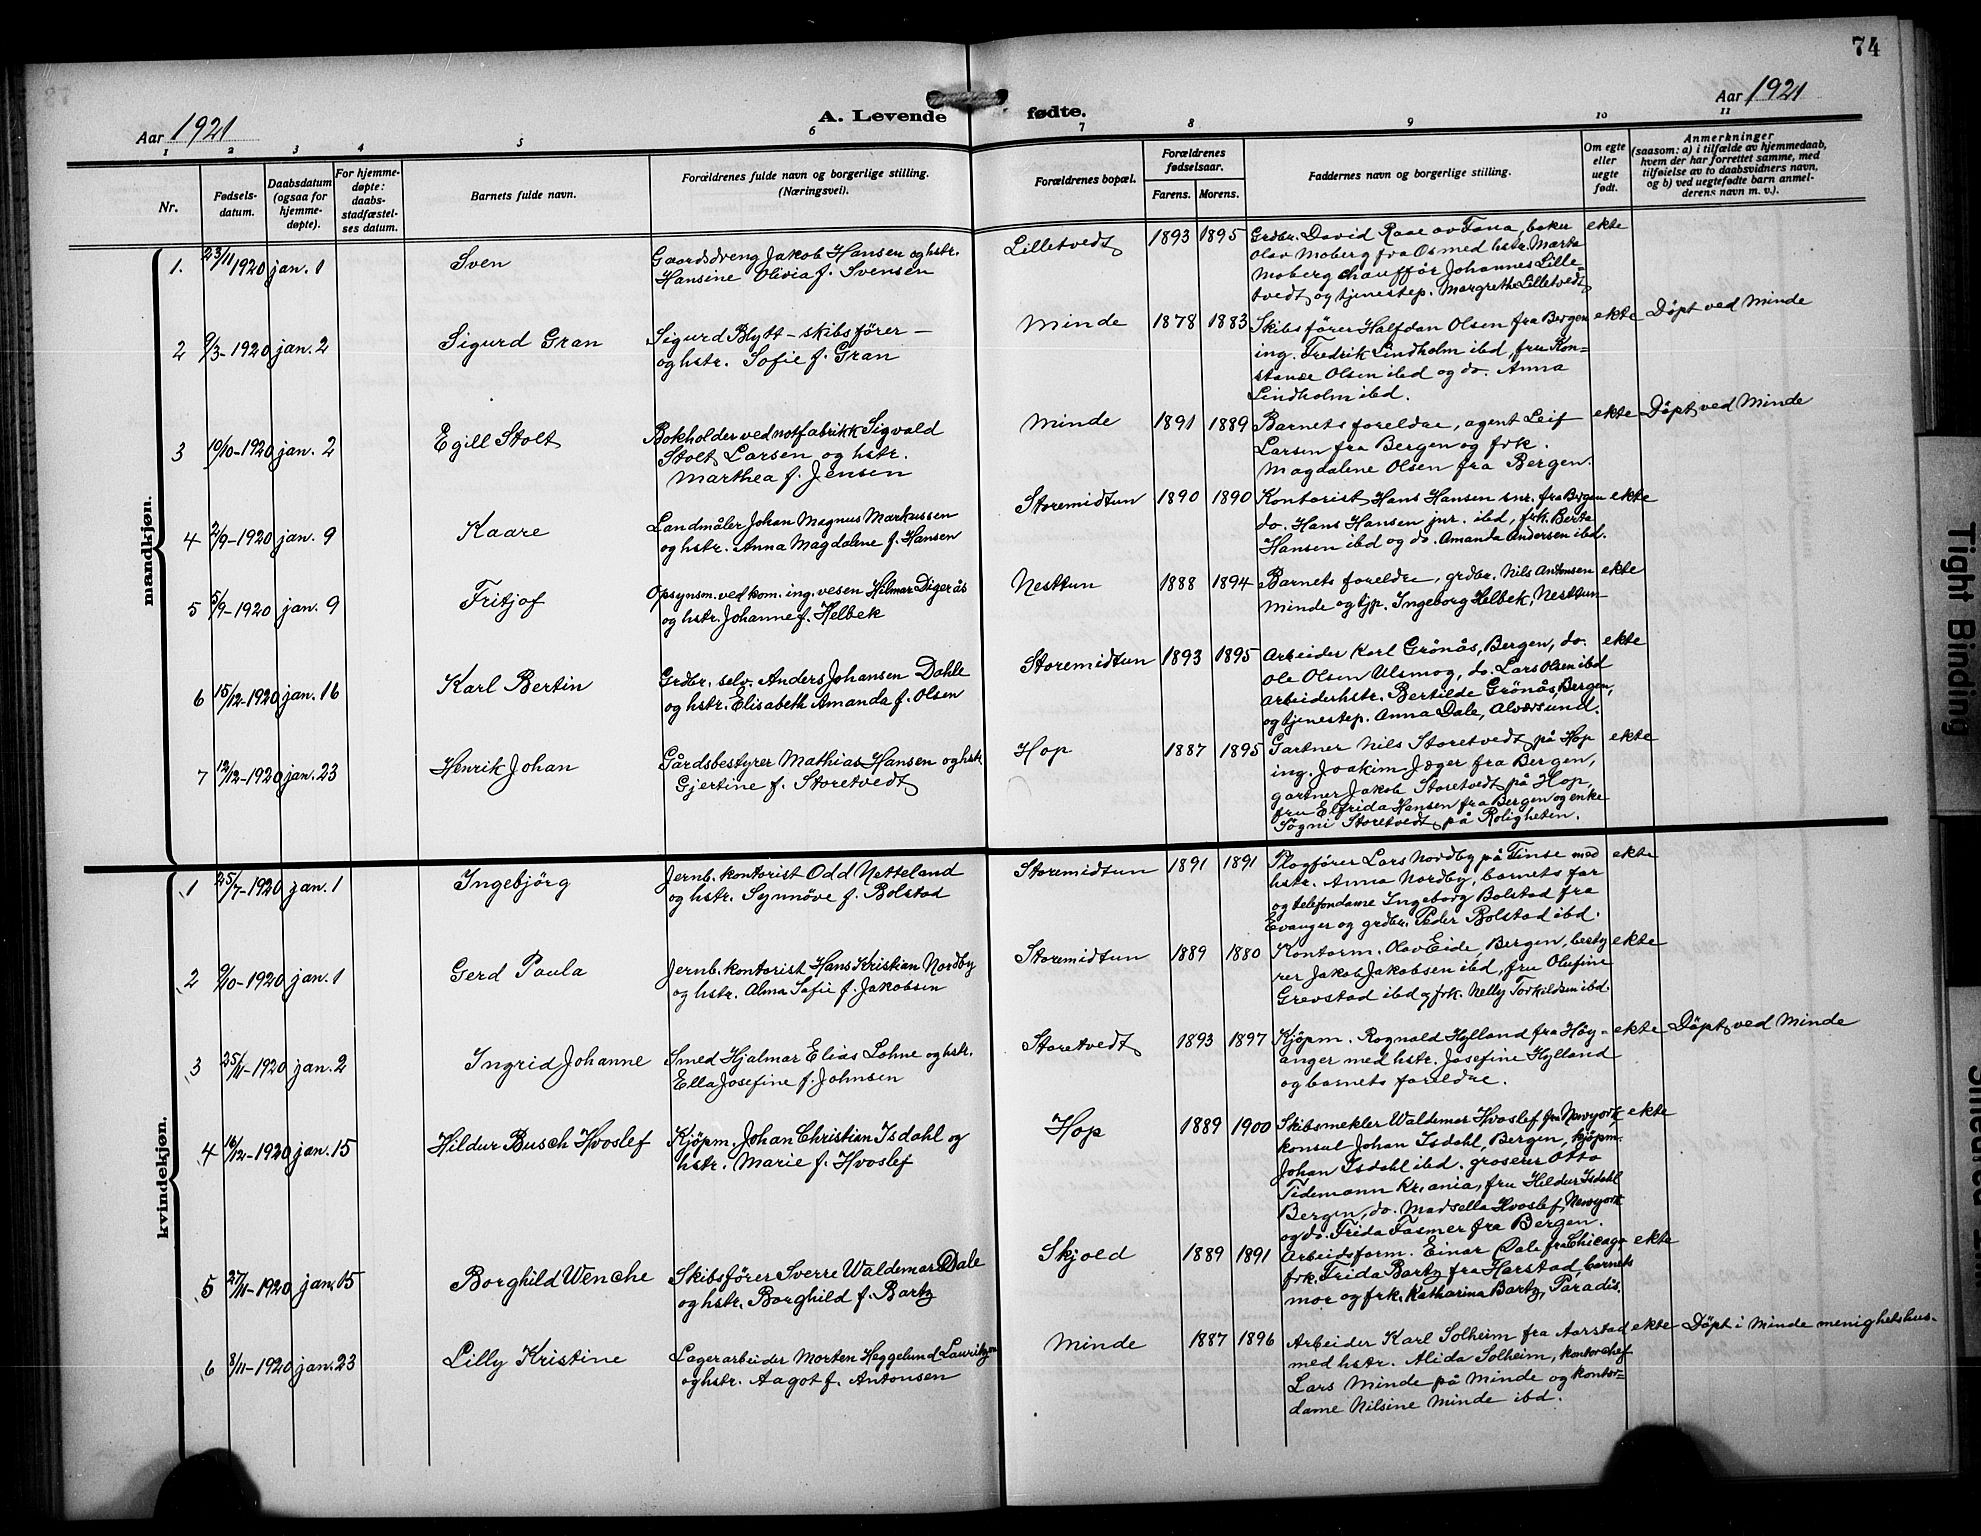 74
Aar 1921
A. Levende fødte.
Aar 1921
1 2 3 4 5 6 7 8 9 10 11
Nr.
Fødsels-
datum.
Daabsdatum
(ogsaa for
hjemme-
døpte).
For hjemme-
døpte:
daabs-
stadfæstel-
ses datum.
Barnets fulde navn.
Forældrenes fulde navn og borgerlige stilling.
(Næringsvei).
Forældrenes bopæl.
Forældrenes
fødselsaar.
Farens. Morens.
Faddernes navn og borgerlige stilling.
Om egte
eller
uegte
født.
Anmerkninger
(saasom: a) i tilfælde av hjemmedaab,
hvem der har forrettet samme, med
tilføielse av to daabsvidners navn,
og b) ved uegtefødte barn anmel-
derens navn m. v.).
mandkjøn.
1. 23/11 1920 jan. 1 Sven
Gaardsdreng Jakob Hansen og hstr.
Hansine Olivia f. Svensen
Lilletvedt 1893 1895
Grdbr. David Raae av Fana, baker
Olav Moberg fra Os med hstr. Marta
Moberg chauffør Johannes Lille-
tvedt og tjenestep. Margrethe Lilletvedt
ekte
2 9/3-1920 jan. 2 Sigurd Gran
Sigurd Blytt – skibsfører –
og hstr. Sofie f. Gran
Minde 1878 1883
Skibsfører Halfdan Olsen fra Bergen
ing. Fredrik Lindholm ibd, fru Kon-
stanse Olsen ibd og do. Anna
Lindholm ibd.
ekte Døpt ved Minde
3 19/10-1920 jan. 2 Egill Stolt
Bokholder ved notfabrikk Sigvald
Stolt Larsen og hstr.
Marthea f. Jensen
Minde 1891 1889
Barnets foreldre, agent Leif
Larsen fra Bergen og frk.
Magdalene Olsen fra Bergen.
ekte Døpt ved Minde
4 2/9-1920 jan. 9 Kaare
Landmåler Johan Magnus Markussen
og hstr. Anna Magdalene f. Hansen
Storemidtun 1890 1890
Kontorist Hans Hansen snr. fra Bergen
do. Hans Hansen jnr. ibd, frk. Berta
Hansen ibd og do. Amanda Andersen ibd.
ekte
5 5/9-1920 jan. 9 Fritjof
Opsynsm. ved kom. ing. vesen Hilmar Digerås
og hstr. Johanne f. Helbek
Nesttun 1888 1894
Barnets foreldre, grdbr. Nils Antonsen
Minde og tjp. Ingeborg Helbek, Nesttun
ekte
6 15/12-1920 jan. 16 Karl Bertin
Grdbr. selv. Anders Johansen Dahle
og hstr. Elisabeth Amanda f. Olsen
Storemidtun 1893 1895
Arbeider Karl Grönås, Bergen, do.
Ole Olsen Ulsmog, do. Lars Olsen ibd
Arbeiderhstr. Bertilde Grönås, Bergen,
og tjenestep. Anna Dale, Alværsund.
ekte
7 12/12-1920 jan. 23 Henrik Johan
Gårdsbestyrer Mathias Hansen og hstr.
Gjertine f. Storetvedt
Hop 1887 1895
Gartner Nils Storetvedt på Hop
ing. Joakim Jæger fra Bergen,
gartner Jakob Storetvedt på Hop,
fru Elfrida Hansen fra Bergen og enke
Sögni Storetvedt på Roligheten.
ekte
kvindekjøn.
1 25/7-1920 jan. 1 Ingebjörg
Jernb. kontorist Odd Netteland
og hstr. Synnöve f. Bolstad
Storemidtun 1891 1891
Plogfører Lars Nordby på Finse med
hstr. Anna Nordby, barnets far
og telefondame Ingeborg Bolstad fra
Evanger og grdbr. Peder Bolstad ibd.
ekte
2 9/10-1920 jan. 1 Gerd Paula
Jernb. kontorist Hans Kristian Nordby
og hstr. Alma Sofie f. Jakobsen
Storemidtun 1889 1880
Kontorm. Olav Eide, Bergen, besty
rer Jakob Jakobsen ibd, fru Olufine
Grevstad ibd og frk. Nelly Torkildsen ibd.
ekte
3 25/11-1920 jan. 2 Ingrid Johanne
Smed Hjalmar Elias Lohne og hstr.
Ella Josefine f. Johnsen
Storetvedt 1893 1897
Kjöpm. Rognald Hylland fra Höy-
anger med hstr. Josefine Hylland
og barnets foreldre.
ekte Døpt ved Minde
4 16/12-1920 jan. 15 Hildur Busch Hvoslef
Kjöpm. Johan Christian Isdahl og
hstr. Marie f. Hvoslef
Hop 1889 1900
Skibsmekler Waldemar Hvoslef fra Newyork
konsul Johan Isdahl, Bergen, kjöpm.
Johan Isdahl ibd. groserer Otto
Tidemann Kr.ania, fru Hildur Isdahl
Bergen, do. Madsella Hvoslef, Newyork
og do. Frida Fasmer fra Bergen.
ekte
5 27/11-1920 jan. 15 Borghild Wenche
Skibsfører Sverre Waldemar Dale
og hstr. Borghild f. Bartz
Skjold 1889 1891
Arbeidsform. Einar Dale fra Chicago,
frk. Frida Bartz fra Harstad, barnets
mor og frk. Katharina Bartz, Paradis.
ekte
6 8/11-1920 jan. 23 Lilly Kristine
Lagerarbeider Morten Heggelund Lauritzen
og hstr. Aagot f. Antonsen
Minde 1887 1896
Arbeider Karl Solheim fra Aarstad
med hstr. Alida Solheim, kontorchef
Lars Minde på Minde og kontor-
dame Nilsine Minde ibd.
ekte Døpt i Minde menighetshus.
Tight Binding